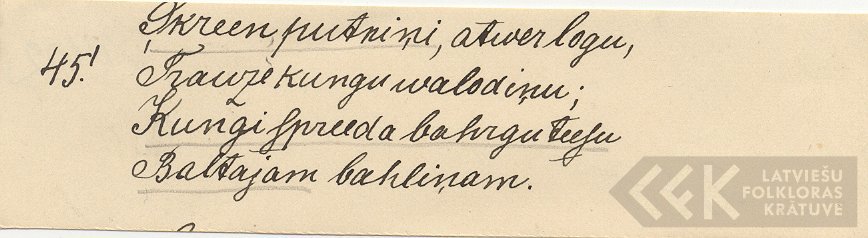 Skreen, putniņi, atwer logu,
45.
Trauzē kungu walodiņu;
Kungi spreeda bahrgu teesu
Baltajam bahliņam.
LATVIEŠU
FOLKLORAS
KRĀTUVE